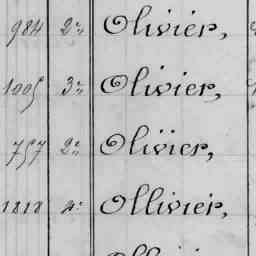 984 2e Olivier,
1005 3e Olivier,
757 2e Olivier,
1818 4e Ollivier,